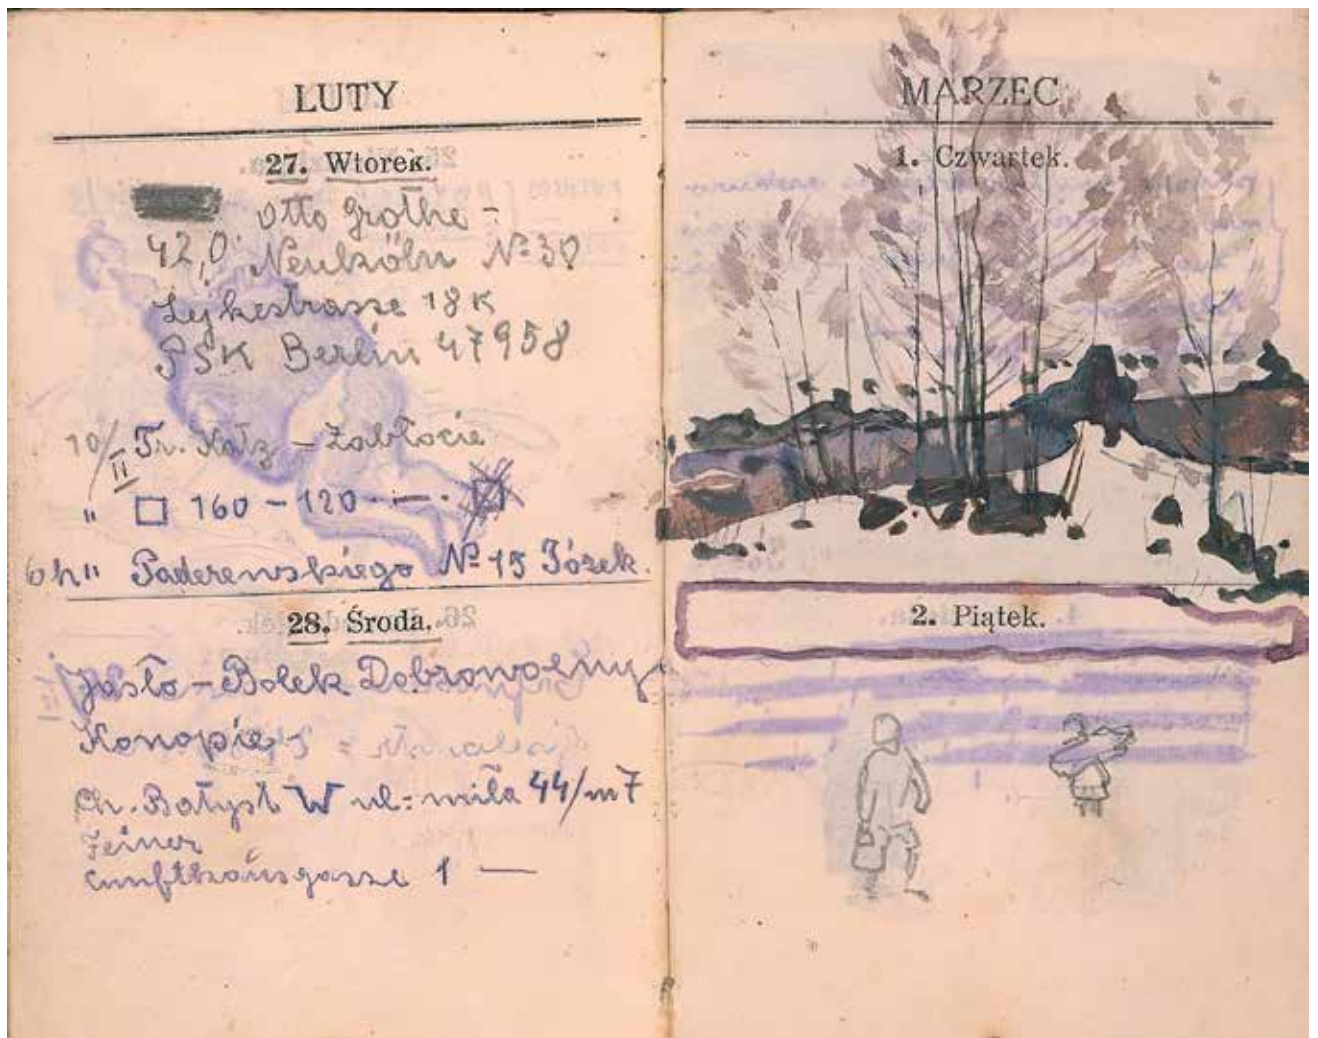 LUTY
27. Wtorek.
Otto Grothe -
42,0. Neukölln № 30
Lejkestrasse 18 K
PSK Berlin 47958
10/II Fr. Kotz - Zabłocie
" □ 160 - 120
6 h " Paderewskiego № 15 Józek.
28. Środa.
Jasło - Bolek Dobrowolny
Konopie
Ch. Bałyst W ul: miła 44/m7
Zünfthausgasse 1 —
MARZEC
1. Czwartek.
2. Piątek.